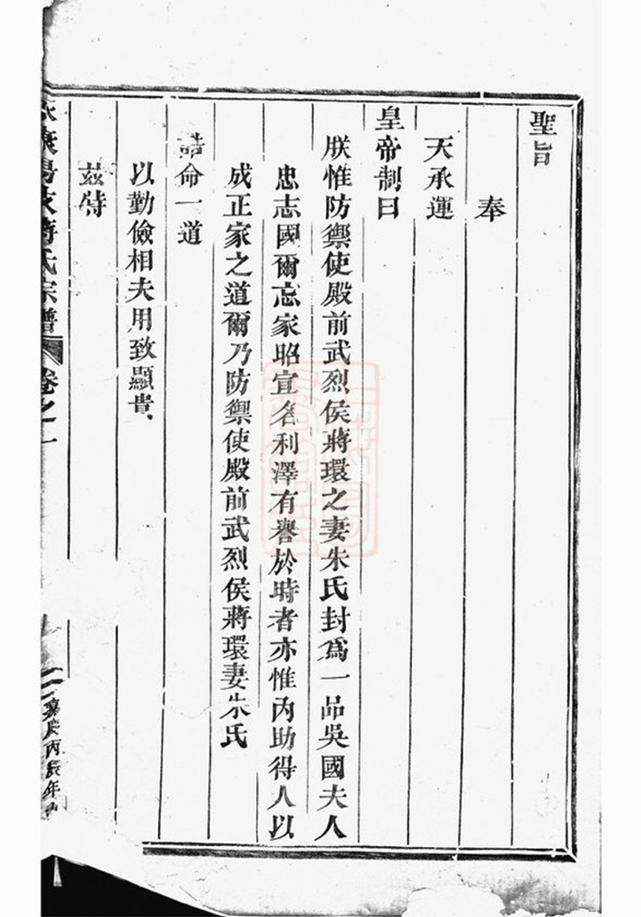 聖旨
奉
天承運
皇帝制曰
朕惟防禦使殿前武烈侯蔣環之妻朱氏封爲一品吳國夫人
忠志國爾忘家昭宣名利澤有譽於時者亦惟內助得人以
成正家之道爾乃防禦使殿前武烈侯蔣環妻朱氏
誥命一道
以勤儉相夫用致顯貴
茲特
氏宗譜 卷之一
嘉慶丙辰年